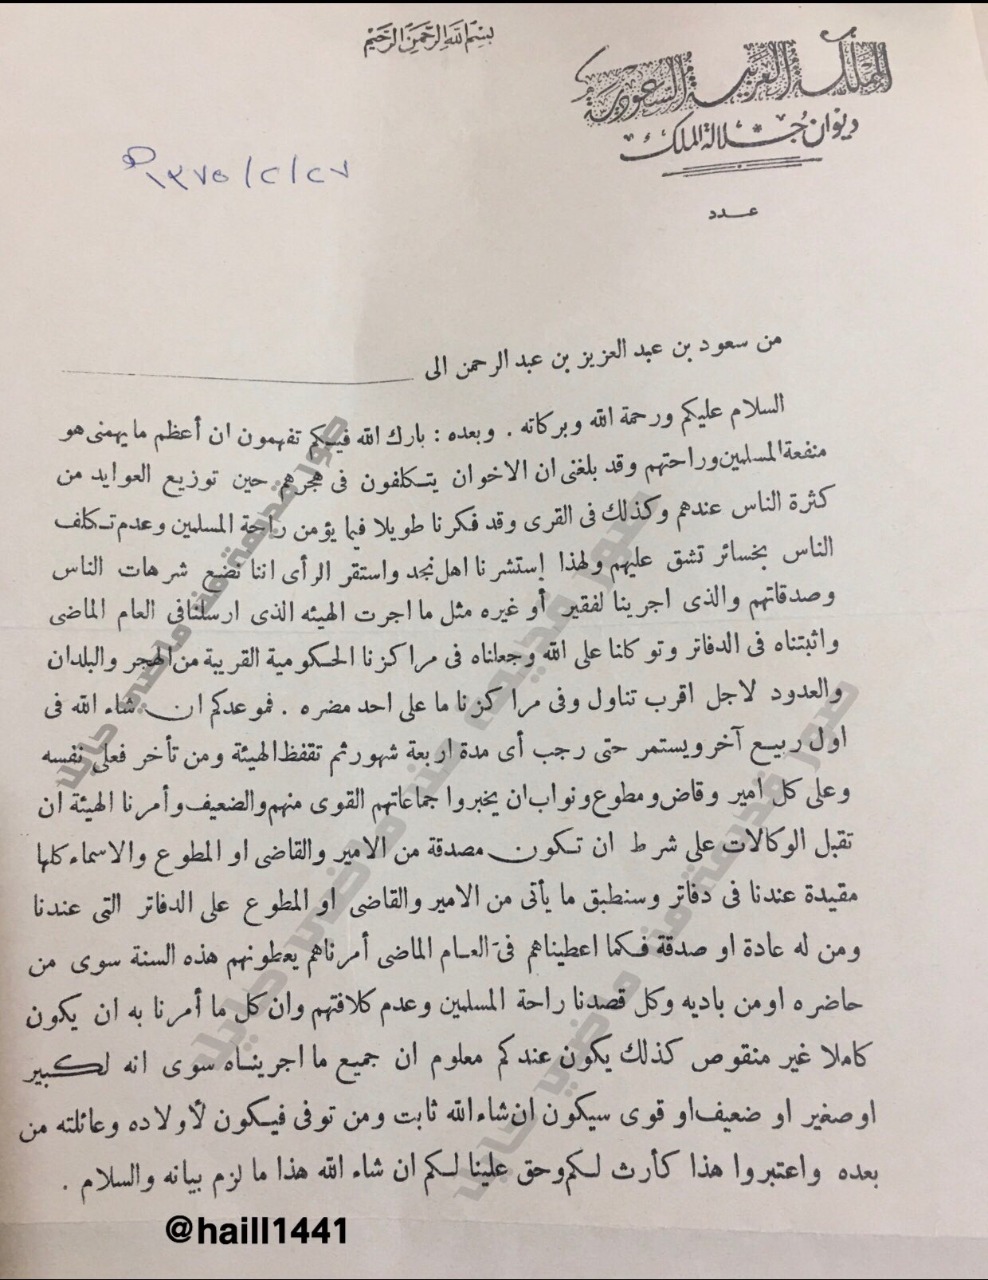 بسم الله الرحمن الرحيم
المملكة العربية السعودية
ديوان جلالة الملك
١٣٧٥/٢/٢٧ هـ
عـدد
من سعود بن عبد العزيز بن عبد الرحمن الى
السلام عليكم ورحمة الله وبركاته . وبعده : بارك الله فيكم تفهمون ان أعظم ما يهمنى هو
منفعة المسلمين وراحتهم وقد بلغنى ان الاخوان يتكلفون فى هجرهم حين توزيع العوايد من
كثرة الناس عندهم وكذلك فى القرى وقد فكرنا طويلا فيما يؤمن راحة المسلمين وعدم تكلف
الناس بخسائر تشق عليهم ولهذا إستشرنا اهل نجد واستقر الرأى اننا نضع شرهات الناس
وصدقاتهم والذى اجرينا لفقير أو غيره مثل ما اجرت الهيئه الذى ارسلنا فى العام الماضى
واثبتناه فى الدفاتر وتوكلنا على الله وجعلناه فى مراكزنا الحكومية القريبة من الهجر والبلدان
والعدود لاجل اقرب تناول وفى مراكزنا ما على احد مضره . فموعدكم ان شاء الله فى
اول ربيع آخر ويستمر حتى رجب أى مدة اربعة شهور ثم تقفظ الهيئة ومن تأخر فعلى نفسه
وعلى كل امير وقاض ومطوع ونواب ان يخبروا جماعاتهم القوى منهم والضعيف وأمرنا الهيئة ان
تقبل الوكالات على شرط ان تكون مصدقة من الامير والقاضى او المطوع والاسماء كلها
مقيدة عندنا فى دفاتر وسنطبق ما يأتى من الامير والقاضى او المطوع على الدفاتر التى عندنا
ومن له عادة او صدقة فكما اعطيناهم فى العام الماضى أمرناهم يعطونهم هذه السنة سوى من
حاضره اومن باديه وكل قصدنا راحة المسلمين وعدم كلافتهم وان كل ما أمرنا به ان يكون
كاملا غير منقوص كذلك يكون عندكم معلوم ان جميع ما اجريناه سوى انه لكبير
اوصغير او ضعيف او قوى سيكون ان شاء الله ثابت ومن توفى فيكون لأولاده وعائلته من
بعده واعتبروا هذا كأرث لكم وحق علينا لكم ان شاء الله هذا ما لزم بيانه والسلام .
صور قديمة من ماضي حايل
صور قديمة من ماضي حايل
صور قديمة من ماضي حايل
@haill1441